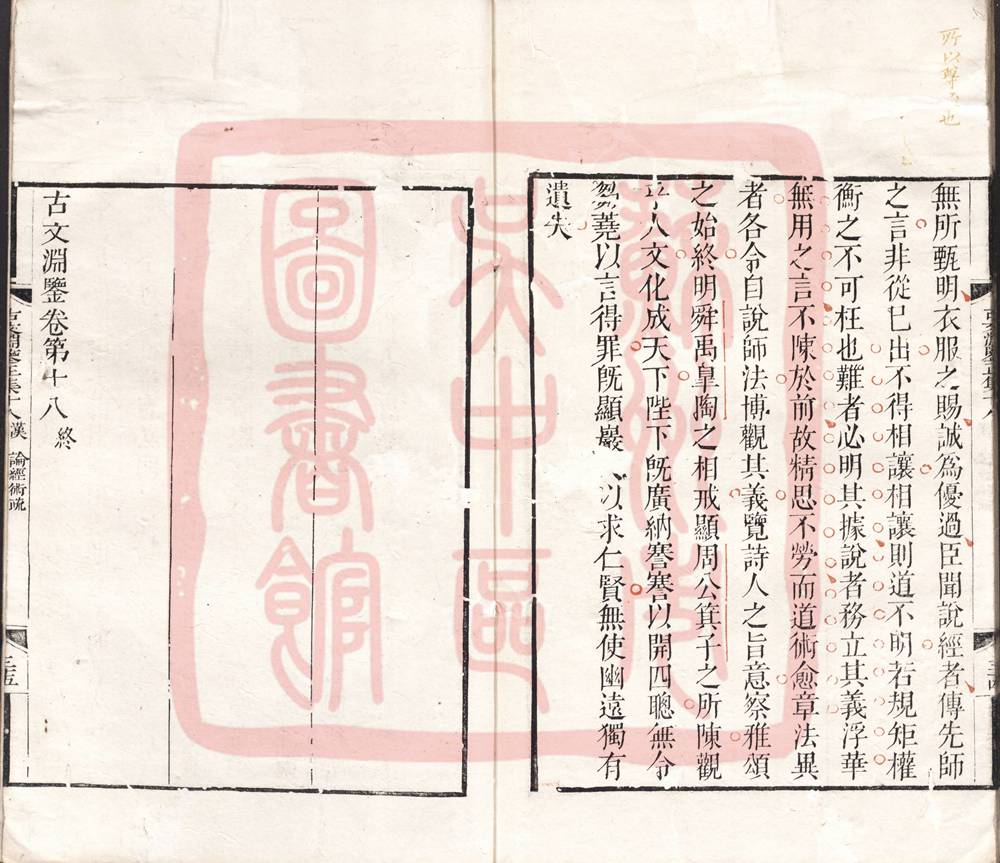 無所甄明衣服之賜誠為優過臣聞說經者傳先師
之言非從已出不得相讓相讓則道不明若規矩權
衡之不可枉也難者必明其據說者務立其義浮華
無用之言不陳於前故精思不勞而道術愈章法異
者各令自說師法博觀其義覽詩人之旨意察雅頌
之始終明舜禹皐陶之相戒顯周公箕子之所陳觀
乎人文化成天下陛下旣廣納謇謇以開四聰無令
芻蕘以言得罪旣顯巖以求仁賢無使幽遠獨有
遺失
古文淵鑒卷第十八 終
古文淵鑒正集十八 漢 論經術疏
三五
圖書館
吳中區